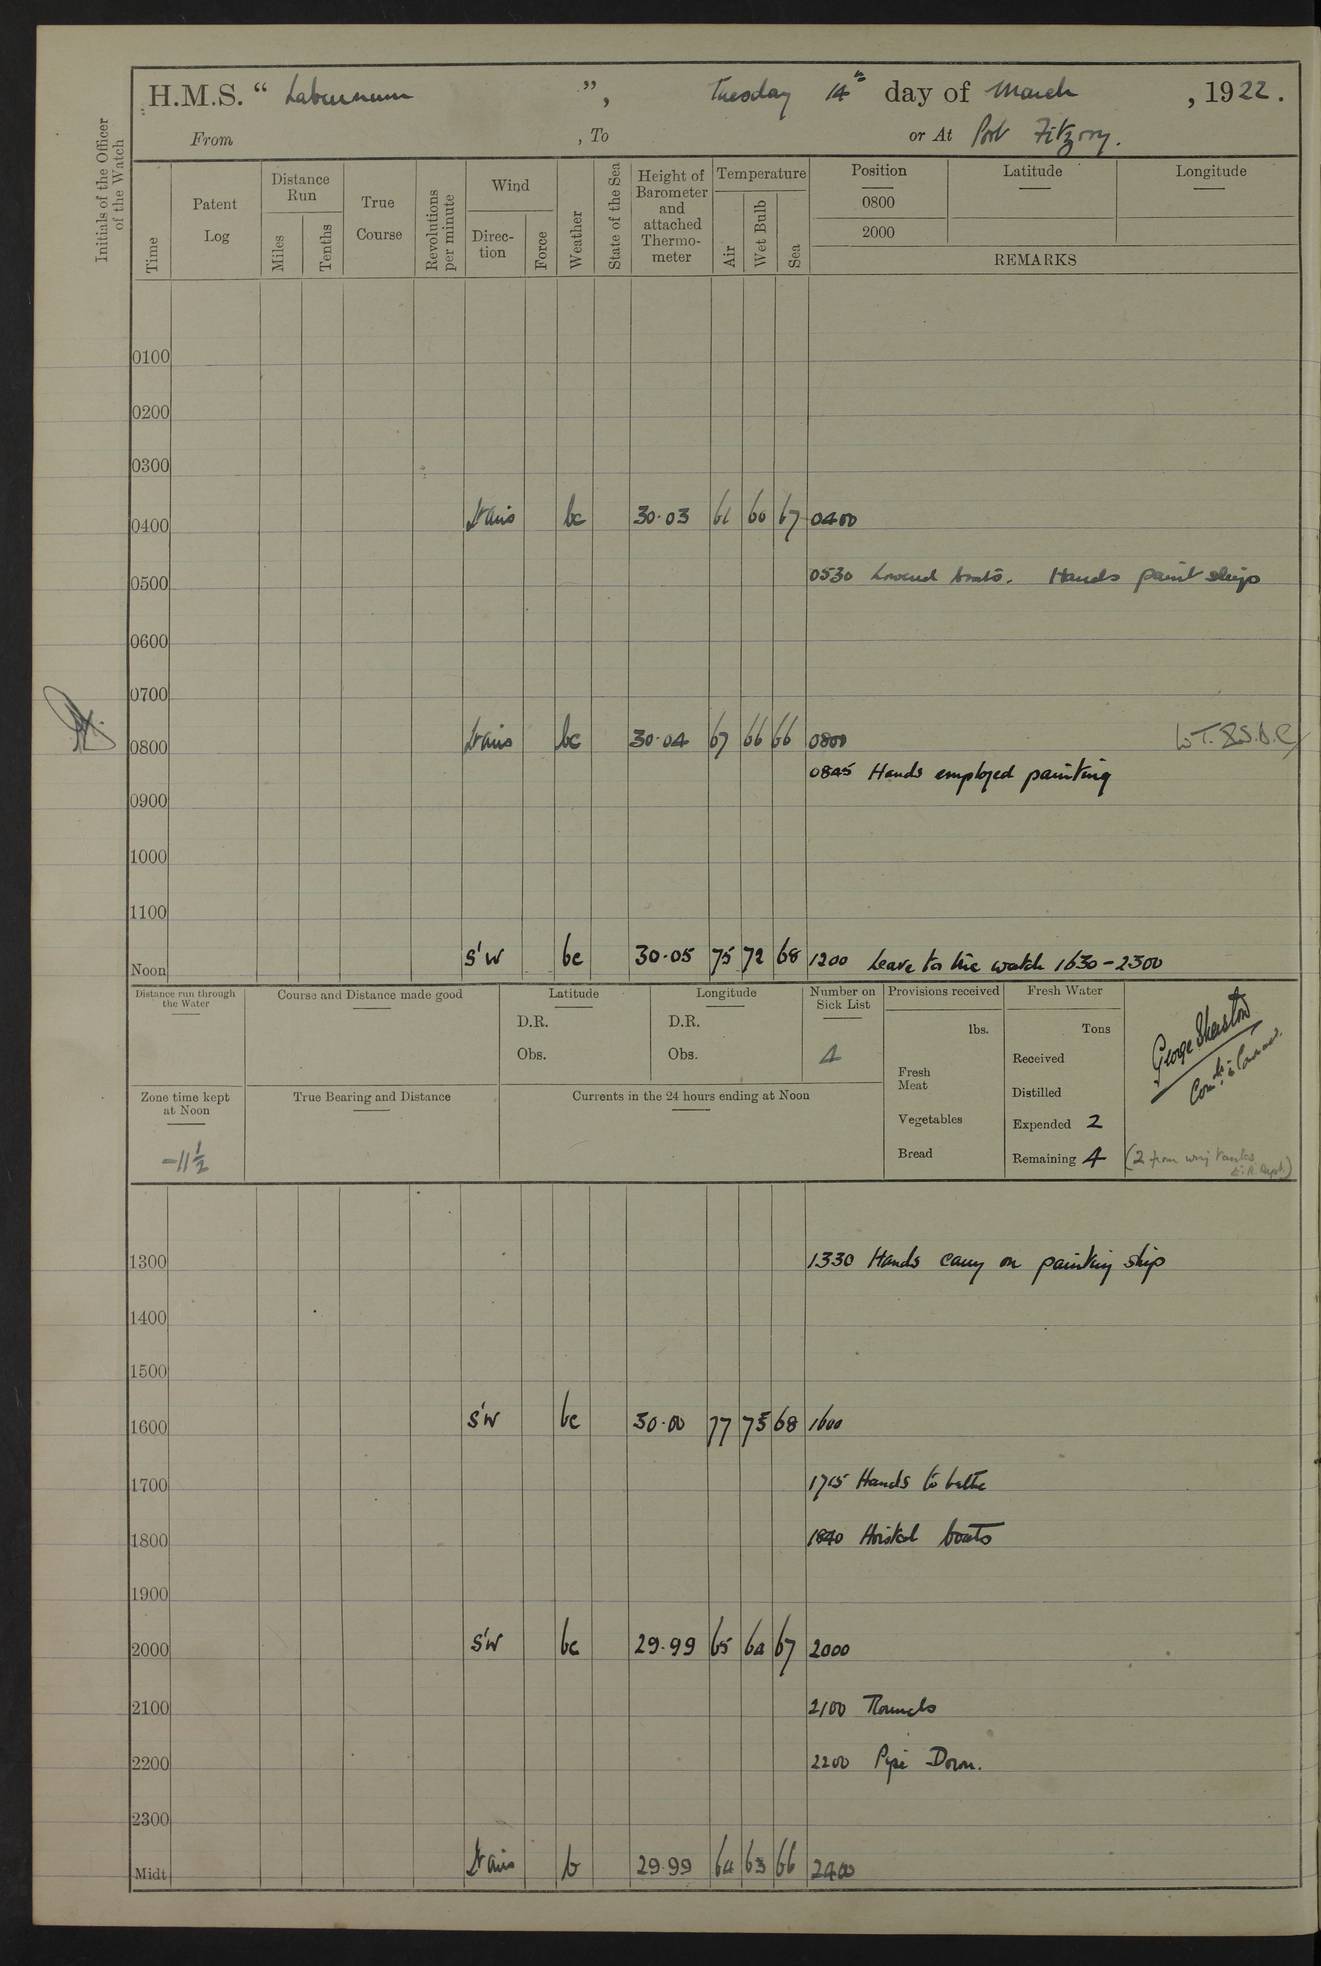 H.M.S. “ Laburnum ”, Tuesday 14th day of March, 1922.
From , To or At Port Fitzroy.
Initials of the Officer of the Watch
Time
Patent Log
Distance Run
Miles
Tenths
True Course
Revolutions per minute
Wind
Direc-tion
Force
Weather
State of the Sea
Height of Barometer and attached Thermo-meter
Temperature
Air
Wet Bulb
Sea
Position
0800
2000
Latitude
Longitude
REMARKS
0100
0200
0300
0400 Lt airs bc 30.03 61 60 67 0400
0500 0530 Lowered boats. Hands paint ship
0600
0700
0800 Lt airs bc 30.04 67 66 66 0800
0845 Hands employed painting
0900
1000
1100
Noon S'W bc 30.05 75 72 68 1200 Leave to the watch 1630-2300
Distance run through the Water
Course and Distance made good
Latitude
D.R.
Obs.
Longitude
D.R.
Obs.
Number on Sick List
4
Provisions received
lbs.
Fresh Meat
Vegetables
Bread
Fresh Water
Tons
Received
Distilled
Expended 2
Remaining 4 (2 from wing tanks
George Sherston
Zone time kept at Noon
-11½
True Bearing and Distance
Currents in the 24 hours ending at Noon
1300 1330 Hands carry on painting ship
1400
1500
1600 S'W bc 30.00 77 73 68 1600
1700 1715 Hands to bathe
1800 1840 Hoisted boats
1900
2000 S'W bc 29.99 65 64 67 2000
2100 2100 Rounds
2200 2200 Pipe Down.
2300
Midt Lt airs b 29.99 64 63 66 2400